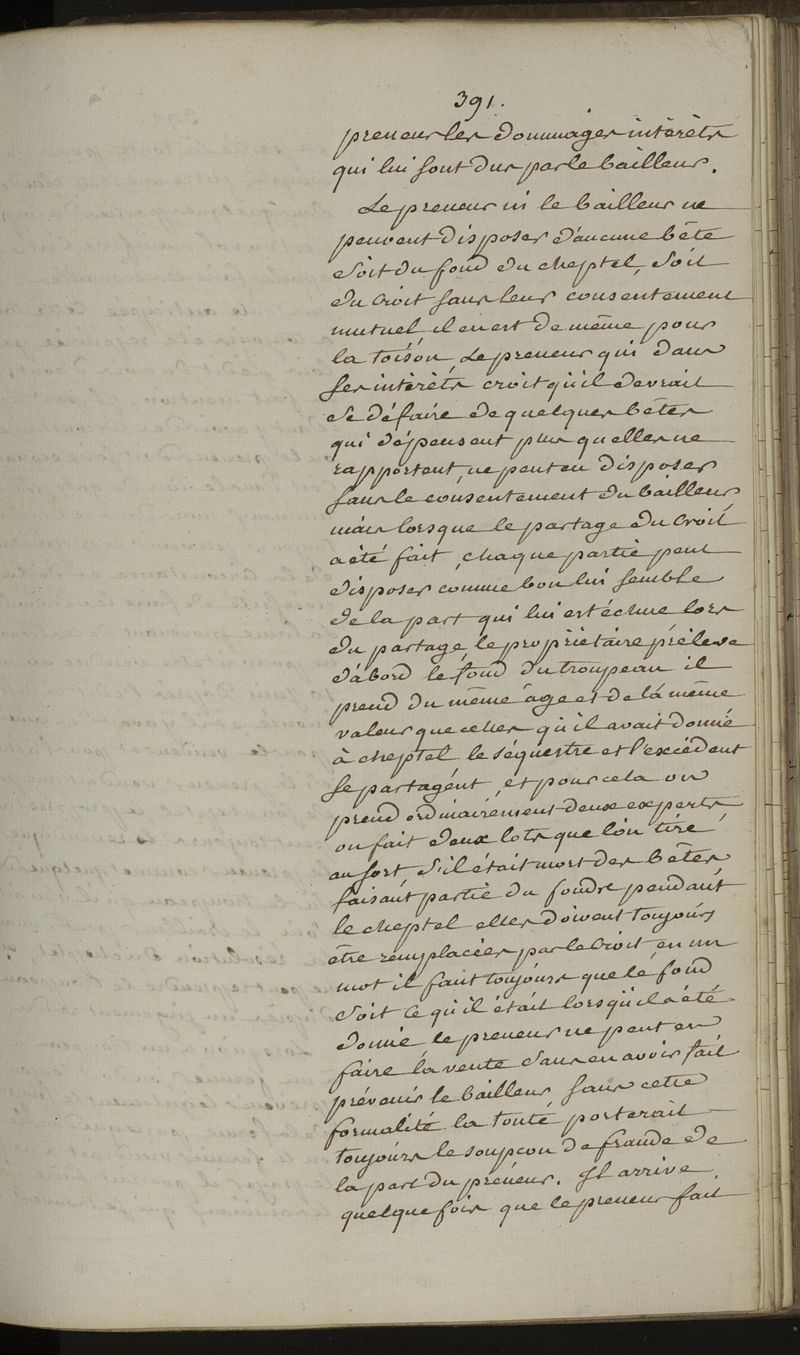 391.
preneur les dommages intérêts
qui lui sont dus par le bailleur.
Le preneur ni le bailleur ne
peuvent disposer d'aucune bête
soit du fond du cheptel, soit
du croit sans leur consentement
mutuel, il en est de même pour
la toison, Le preneur qui dans
ses intérêts croit qu'il devrait
se défaire de quelques bêtes
qui dépensent plus qu'elles ne
rapportent, ne peut en disposer
sans le consentement du bailleur
mais lorsque le partage du croit
a été fait, chaque partie peut
disposer comme bon lui semble
de la part qui lui est échue lors
du partage, le propriétaire prélève
d'abord le fond du troupeau il
prend du même âge et de la même
valeur que celles qu'il avait donné
à cheptel le séquestre et l'excédent
se partagent, et pour cela on
prend ordinairement deux experts
on fait deux lots que l'on tire
au sort S'il était mort des bêtes
faisant partie du fondre pendant
le cheptel elles doivent toujours
être remplacées par le croit en un
mot il faut toujours que le fond
soit ce qu'il était lorsqu'il a été
donné, le preneur ne peut en
faire la vente sans en avoir fait
prévenir le bailleur sans cette
formalité la tonte porterait
toujours le soupçon de fraude de
la part du preneur. Il arrive
quelque fois que le preneur fait